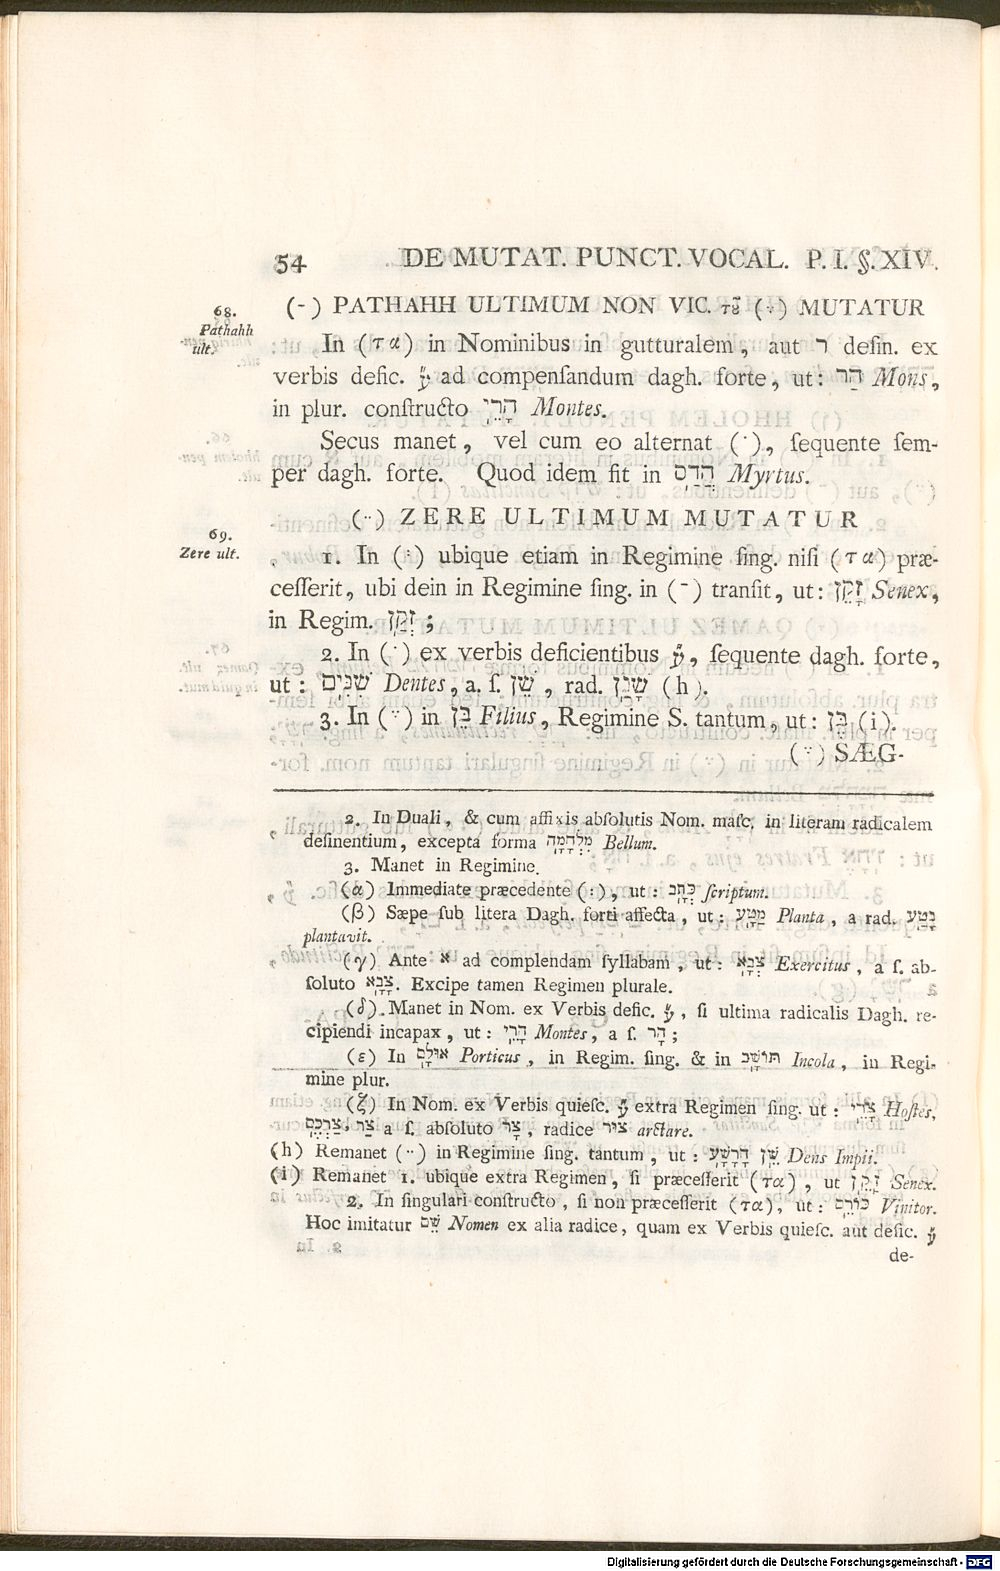 54 DE MUTAT. PUNCT. VOCAL. P. I. §. XIV.
68.
Pathahh
ult.
(-) PATHAHH ULTIMUM NON VIC. τȣ͂ (ָ) MUTATUR
In (τα) in Nominibus in gutturalem, aut ר desin. ex
verbis defic. ע֞ ad compensandum dagh. forte, ut: הַר Mons,
in plur. constructo הָרֵי Montes.
Secus manet, vel cum eo alternat (ִ), sequente sem-
per dagh. forte. Quod idem fit in הֲדַס Myrtus.
69.
Zere ult.
(ֵ) ZERE ULTIMUM MUTATUR
1. In (ְ) ubique etiam in Regimine sing. nisi (τα) præ-
cesserit, ubi dein in Regimine sing. in (-) transit, ut: זָקֵן Senex,
in Regim. זְקַן;
2. In (ִ) ex verbis deficientibus ע֞, sequente dagh. forte,
ut: שִׁנַּיִם Dentes, a. s. שֵׁן, rad. שָׁנַן (h).
3. In (ֶ) in בֵּן Filius, Regimine S. tantum, ut: בֶּן (i).
(ֶ) SÆG-
2. In Duali, & cum affixis absolutis Nom. masc. in literam radicalem
desinentium, excepta forma מִלְחָמָה Bellum.
3. Manet in Regimine.
(α) Immediate præcedente (:), ut: כְּתָב scriptum.
(β) Sæpe sub litera Dagh. forti affecta, ut: מַטָּע Planta, a rad. נָטַע
plantavit.
(γ) Ante א ad complendam syllabam, ut: צְבָא Exercitus, a s. ab-
soluto צָבָא. Excipe tamen Regimen plurale.
(δ) Manet in Nom. ex Verbis defic. ע֞, si ultima radicalis Dagh. re-
cipiendi incapax, ut: הָרֵי Montes, a s. הַר;
(ε) In אוּלָם Porticus, in Regim. sing. & in תּוֹשָׁב Incola, in Regi-
mine plur.
(ζ) In Nom. ex Verbis quiesc. ע֞ extra Regimen sing. ut: צָרֵי Hostes,
צַר, צַרְכֶם a s. absoluto צָר, radice צִיר arctare.
(h) Remanet (ֵ) in Regimine sing. tantum, ut: שֵׁן הָרָשָׁע Dens Impii.
(i) Remanet 1. ubique extra Regimen, si præcesserit (τα), ut זָקֵן Senex.
2. In singulari constructo, si non præcesserit (τα), ut: כּוֹרֵם Vinitor.
Hoc imitatur שֵׁם Nomen ex alia radice, quam ex Verbis quiesc. aut defic. ע֞
de-
Digitalisierung gefördert durch die Deutsche Forschungsgemeinschaft - DFG